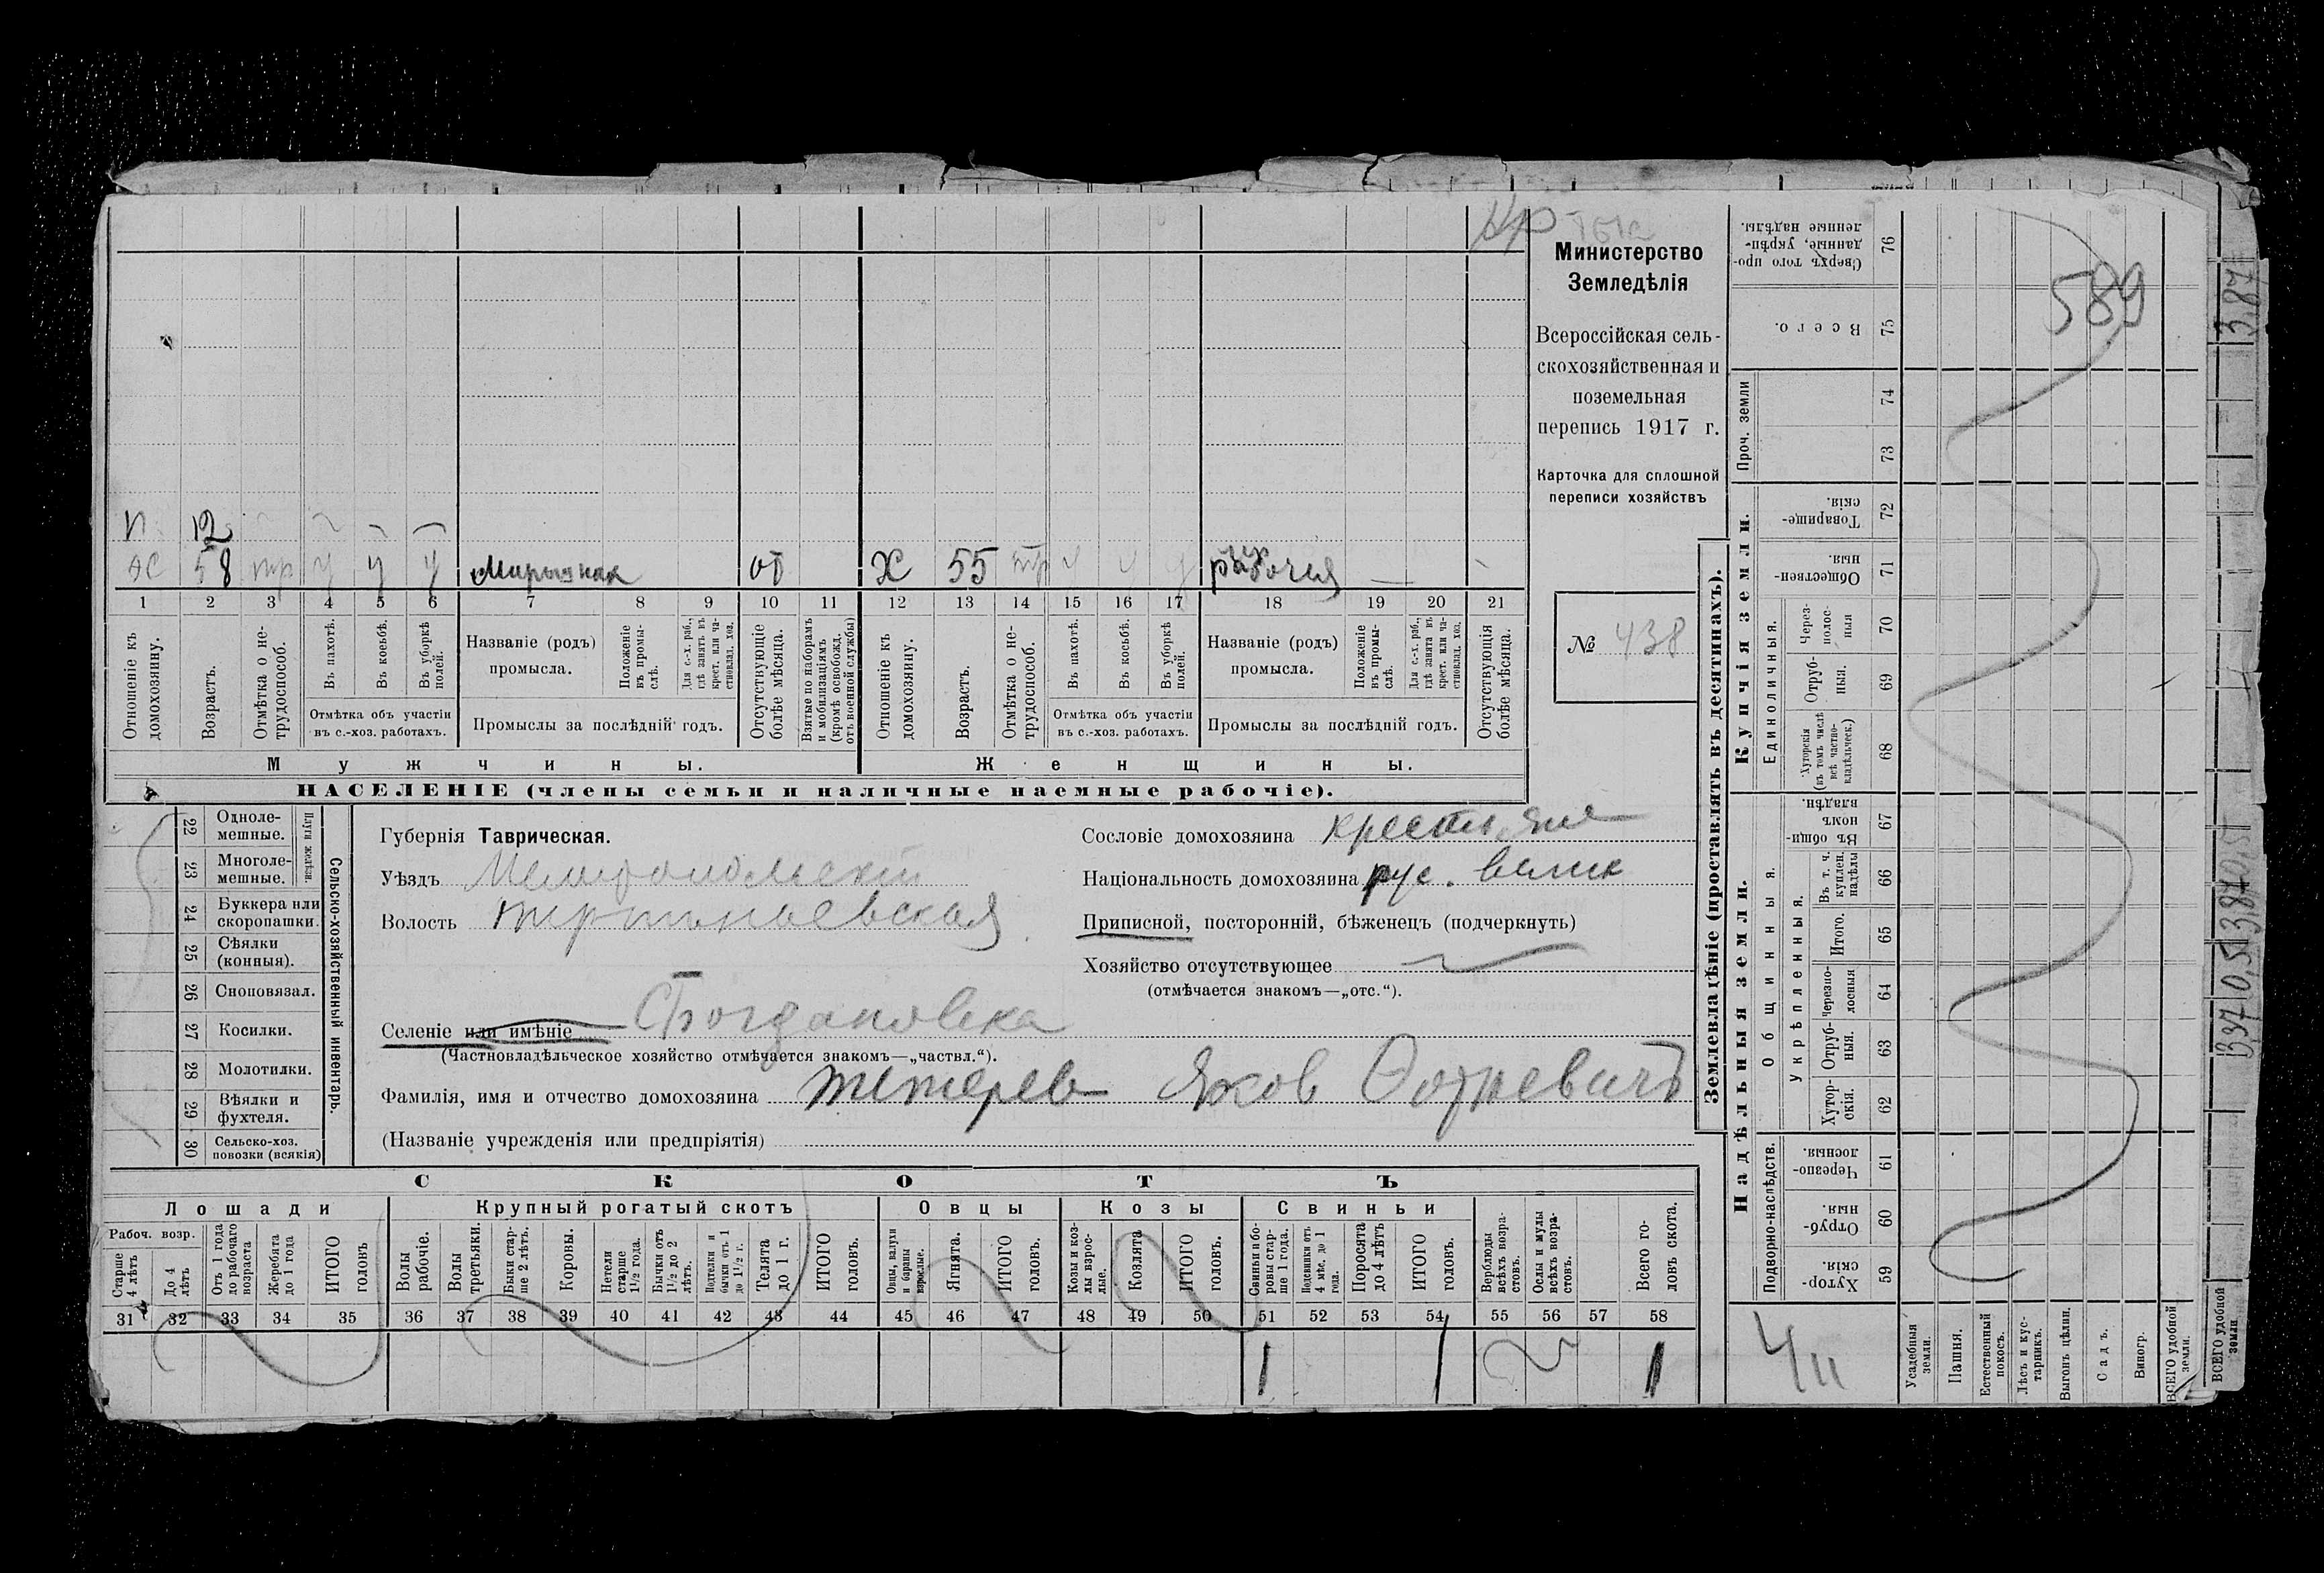 Министерство
Земледѣлія
Всероссійская сель-
скохозяйственная и
поземельная
перепись 1917 г.
Карточка для сплошной
переписи хозяйствъ
№ 438
589
п 12
58 55 рабочая
1 2 3 4 5 6 7 8 9 10 11 12 13 14 15 16 17 18 19 20 21
Отношеніе къ домохозяину.
Возрастъ.
Отмѣтка о не-трудоспособ.
Въ пахотѣ.
Въ косьбѣ.
Въ уборкѣ полей.
Отмѣтка объ участіи
въ с.-хоз. работахъ.
Названіе (родъ)
промысла.
Положеніе въ промы-слѣ.
Для с.-х. раб., гдѣ занятъ въ крест. или ча-стновлад. хоз.
Промыслы за послѣдній годъ.
Отсутствующіе болѣе мѣсяца.
Взятые по наборамъ и мобилизаціямъ (кромѣ освобожд. отъ военной службы)
Отношеніе къ домохозяину.
Возрастъ.
Отмѣтка о не-трудоспособ.
Въ пахотѣ.
Въ косьбѣ.
Въ уборкѣ полей.
Отмѣтка объ участіи
въ с.-хоз. работахъ.
Названіе (родъ)
промысла.
Положеніе въ промы-слѣ.
Для с.-х. раб., гдѣ занятъ въ крест. или ча-стновлад. хоз.
Промыслы за послѣдній годъ.
Отсутствующія болѣе мѣсяца.
Мужчины. Женщины.
НАСЕЛЕНІЕ (члены семьи и наличные наемные рабочіе).
22 Одноле-мешные.
23 Многоле-мешные.
Плуги желѣзн.
24 Буккера или скоропашки.
25 Сѣялки (конныя).
26 Сноповязал.
27 Косилки.
28 Молотилки.
29 Вѣялки и фухтеля.
30 Сельско-хоз. повозки (всякія)
Сельско-хозяйственный инвентарь.
Губернія Таврическая.
Уѣздъ Мелитопольскій
Волость
Селеніе или имѣніе Богдановка
(Частновладѣльческое хозяйство отмѣчается знакомъ—„частвл.“).
Фамилія, имя и отчество домохозяина Тетерев Яков
(Названіе учрежденія или предпріятія)
Сословіе домохозяина
Національность домохозяина рус. велик
Приписной, посторонній, бѣженецъ (подчеркнуть)
Хозяйство отсутствующее
(отмѣчается знакомъ—„отс.“).
СКОТЪ
Лошади
Рабоч. возр.
Старше 4 лѣтъ
До 4 лѣтъ
Отъ 1 года до рабочаго возраста
Жеребята до 1 года
ИТОГО головъ
Крупный рогатый скотъ
Волы рабочіе.
Волы третьяки.
Быки стар-ше 2 лѣтъ.
Коровы.
Нетели старше 1½ года.
Бычки отъ 1½ до 2 лѣтъ.
Подтелки и бычки отъ 1 до 1½ г.
Телята до 1 г.
ИТОГО головъ.
Овцы
Овцы, валухи и бараны взрослые.
Ягнята.
ИТОГО головъ.
Козы
Козы и коз-лы взрос-лые.
Козлята
ИТОГО головъ.
Свиньи
Свиньи и бо-ровы стар-ше 1 года.
Подсвинки отъ 4 мѣс. до 1 года.
Поросята до 4 лѣтъ
ИТОГО головъ.
Верблюды всѣхъ возра-стовъ.
Ослы и мулы всѣхъ возра-стовъ.
Всего го-ловъ скота.
31 32 33 34 35 36 37 38 39 40 41 42 43 44 45 46 47 48 49 50 51 52 53 54 55 56 57 58
1 1 1
Землевладѣніе (проставлять въ десятинахъ).
Купчія земли.
Надѣльныя земли.
Сверхъ того про-данные, укрѣп-ленные надѣлы. 76
Всего. 75
Проч. земли
74
73
Товарище-скія. 72
Обществен-ныя. 71
Единоличныя.
Через-полос-ныя 70
Отруб-ныя. 69
Хуторскія (въ томъ числѣ всѣ частно-владѣльческ.) 68
Общинныя.
Въ общи-номъ владѣн. 67
Укрѣпленныя.
Въ т. ч. куплен. надѣлы 66
Итого. 65
Черезпо-лосныя 64
Отруб-ныя. 63
Хутор-скія. 62
Подворно-наслѣдств.
Черезпо-лосныя. 61
Отруб-ныя. 60
Хутор-скія. 59
Усадебныя земли.
Пашня.
Естественный покосъ.
Лѣсъ и кус-тарникъ.
Выгонъ цѣлин.
Садъ.
Виногр.
ВСЕГО удобной земли.
ВСЕГО удобной земли
3,87